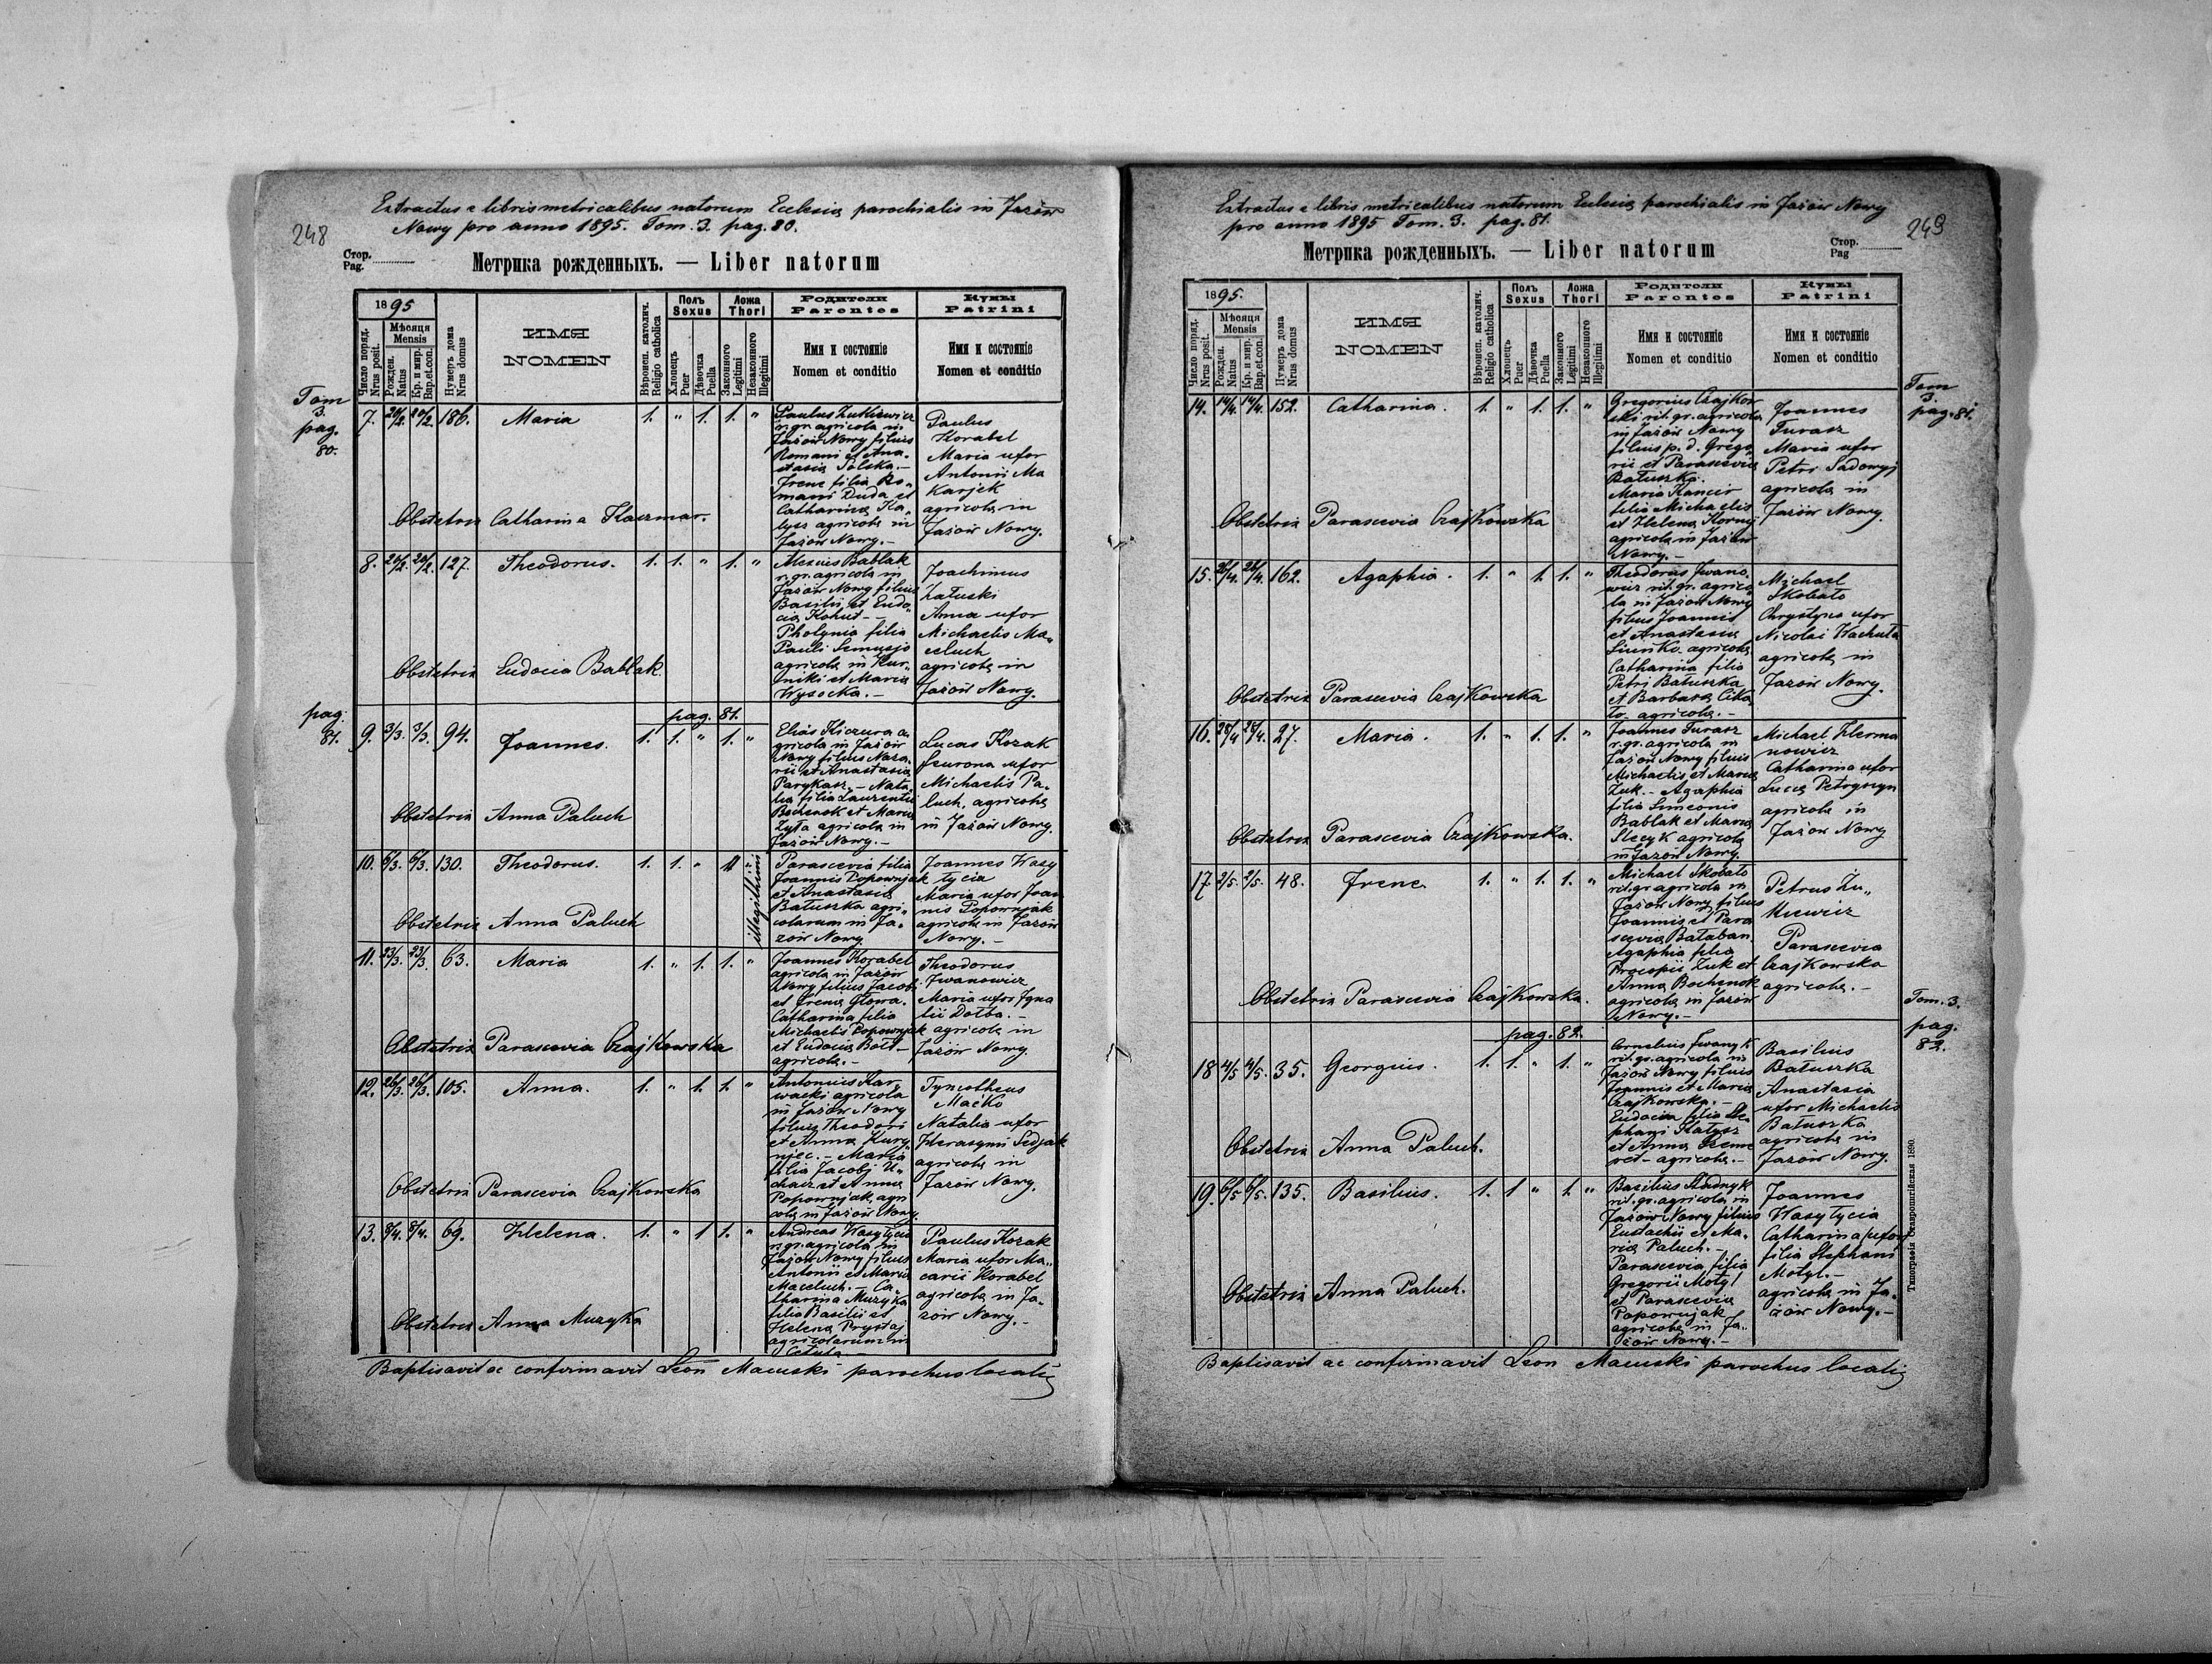 248
Extractus e libris metricalibus natorum Ecclesiæ parochialis in Jazów
Nowy pro anno 1895. Tom. 3. pag. 80.
Стор.
Pag.
Метрика рожденныхъ. — Liber natorum
1895
Число поряд.
Nrus posit.
Мѣсяця
Mensis
Рожден.
Natus
Кр. и мир.
Bap. et. con.
Нумеръ дома
Nrus domus
ИМЯ
NOMEN
Вѣроисп. католич.
Religio catholica
Полъ
Sexus
Хлопець
Puer
Дѣвочка
Puella
Ложа
Thori
Законного
Legitimi
Незаконного
Illegitimi
Родители
Parentes
Имя и состоянiе
Nomen et conditio
Кумы
Patrini
Имя и состоянiе
Nomen et conditio
Tom
3.
pag.
80.
7. 20/2. 20/2. 186. Maria 1. " 1. 1. "
Paulus Zutkiewicz
r. gr. agricola in
Jazów Nowy filius
Romani et Ana-
stasiæ Solska.-
Irene filia Ro-
mani Duda et
Catharinæ Ka-
agricolæ in
Jazów Nowy.-
Paulus
Korabel
Maria uxor
Antonii Ma
Karjek
agricolæ in
Jazów Nowy.
Obstetrix Catharina Kaczmar.
8. 20/2. 127. Theodorus. 1. 1. " 1. "
Alexius Bablak
r. gr. agricola in
Jazów Nowy filius
Basilii et Eudo-
ciæ Kohut -
filia
Pauli
agricolæ in Kur-
niki et Mariæ
Wysocka.-
Joachimus
Załuski
Anna uxor
Michaelis Ma-
celuch
agricolæ in
Jazów Nowy.
Obstetrix Eudocia Bablak.
pag.
81.
pag. 81.
9. 3/3. 3/3. 94. Joannes. 1. 1. " 1. "
Elias Kiczura a-
gricola in Jazów
Nowy filius Naza-
rii et Anastasiæ
Parykasz.- Nata-
lia filia Laurentii
Bochenok et Mariæ
Zyła agricolæ in
Jazów Nowy.-
Lucas Kozak
uxor
Michaelis Pa-
luch, agricolæ
in Jazów Nowy.
Obstetrix Anna Paluch
10. 6/3. 6/3. 130. Theodorus. 1. 1. "
illegitimi
Parascevia filia
Joannis Popownjak
et Anastasiæ
Batuszka agri-
colarum in Ja-
zów Nowy
Joannes Wasy
tycia
Maria uxor Joan
nis Popownjak
agricolæ in Jazów
Nowy.-
Obstetrix Anna Paluch
11. 23/3. 23/3. 63. Maria 1. " 1. 1. "
Joannes Korabel
agricola in Jazów
Nowy filius Jacobi
et Irenæ Głowa.
Catharina filia
Michaelis Popownjak
et Eudociæ Bołd-
agricolæ.-
Theodorus
Iwanowicz
Maria uxor Igna
tii Dołba.-
agricolæ in
Jazów Nowy.
Obstetrix Parascevia Czajkowska
12. 26/3. 26/3. 105. Anna. 1. " 1. 1. "
Antonius Kar-
wacki agricola
in Jazów Nowy
filius Theodori
et Annæ Kury-
njec.- Maria
filia Jacobi
et Annæ
Popownjak agri
colæ in Jazów Nowy.
Tymotheus
Maćko
Natalia uxor
Herasymi Sedjak
agricolæ in
Jazów Nowy.
Obstetrix Parascevia Czajkowska
13. 8/4. 8/4. 69. Helena. 1. " 1 1. "
Andreas Wasytycia
r. gr. agricola in
Jazów Nowy filius
Antonii et Mariæ
Maceluch.- Ca-
tharina Muzyka
filia Basilii et
Helenæ Prystaj
agricolarum in
Cetula
Paulus Kozak
Maria uxor Ma-
carii Korabel
agricolæ in Ja-
zów Nowy.-
Obstetrix Anna Muzyka
Baptisavit ac confirmavit Leon Macuski parochus localis
249
Extractus e libris metricalibus natorum Ecclesiæ parochialis in Jazów Nowy
pro anno 1895 Tom. 3. pag. 81.
Метрика рожденныхъ. — Liber natorum
Стор.
Pag
1895.
Число поряд.
Nrus posit.
Мѣсяця
Mensis
Рожден.
Natus
Кр. и мир.
Bap. et. con.
Нумеръ дома
Nrus domus
ИМЯ
NOMEN
Вѣроисп. католич.
Religio catholica
Полъ
Sexus
Хлопецъ
Puer
Дѣвочка
Puella
Ложа
Thori
Законного
Legitimi
Незаконного
Illegitimi
Родители
Parentes
Имя и состоянiе
Nomen et conditio
Кумы
Patrini
Имя и состоянiе
Nomen et conditio
Tom
3.
pag. 81.
14. 14/4. 14/4. 152. Catharina. 1. " 1. 1. "
Gregorius Czajkow
ski rit. gr. agricola
in Jazów Nowy
filius p. d. Grego-
rii et Parasceviæ
Batuszka.
Maria Kancir
filia Michaelis
et Helenæ Kornij
agricolæ in Jazów
Nowy.-
Joannes
Turasz
Maria uxor
Petri Sadowyj
agricolæ in
Jazów Nowy.
Obstetrix Parascevia Czajkowska
15. 26/4. 26/4. 162. Agaphia. 1. " 1. 1. "
Theodorus Iwano-
wicz rit. gr. agrico-
la in Jazów Nowy
filius Joannis
et Anastasiæ
agricolæ
Catharina filia
Petri Batuszka
et Barbaræ Cika
ło- agricolæ.-
Michael
Skobało
Chrystyna uxor
Nicolai Wachuta
agricolæ in
Jazów Nowy.
Obstetrix Parascevia Czajkowska
16. 28/4. 28/4. 27. Maria. 1. " 1. 1. "
Joannes Turasz
r. gr. agricola in
Jazów Nowy filius
Michaelis et Mariæ
Zuk.- Agaphia
filia Simeonis
Bablak et Mariæ
Stecyk agricolæ
in Jazów Nowy.
Michael Herma
nowicz
Catharina uxor
Lucæ Petryszyn
agricolæ in
Jazów Nowy
Obstetrix Parascevia Czajkowska.
17. 2/5. 2/5. 48. Irene. 1. " 1. 1. "
Michael Skobało
rit. gr. agricola in
Jazów Nowy filius
Joannis et Para
sceviæ Bałaban.
Agaphia filia
Procopii Zuk et
Annæ Bochenok
agricolæ in Jazów
Nowy.-
Petrus Zu-
Parascevia
Czajkowska
agricolæ.-
Obstetrix Parascevia Czajkowska.
Tom. 3.
pag.
82.
pag. 82.
18 4/5 4/5. 35. Georgius. 1. 1. " 1. "
Cornelius Iwanyk
rit. gr. agricola in
Jazów Nowy filius
Joannis et Mariæ
Czajkowska.-
Eudocia filia Ste-
phani
et Annæ
agricolæ.-
Basilius
Batuszka
Anastasia
uxor Michaelis
Batuszka
agricolæ in
Jazów Nowy.
Obstetrix Anna Paluch.
19. 6/5 6/5. 135. Basilius. 1. 1 " 1. "
Basilius Studnyk
rit. gr. agricola in
Jazów Nowy filius
Eustachii et Ma-
riæ Paluch.-
Parascevia filia
Gregorii Motyl
et Parasceviæ
Popownjak
agricolæ in Ja-
zów Nowy.-
Joannes
Wasytycia
Catharina
filia Stephani
Motyl.-
agricolæ in Ja-
zów Nowy.-
Obstetrix Anna Paluch.
Baptisavit ac confirmavit Leon Macuski parochus localis
Типографія Ставропигійская 1890.